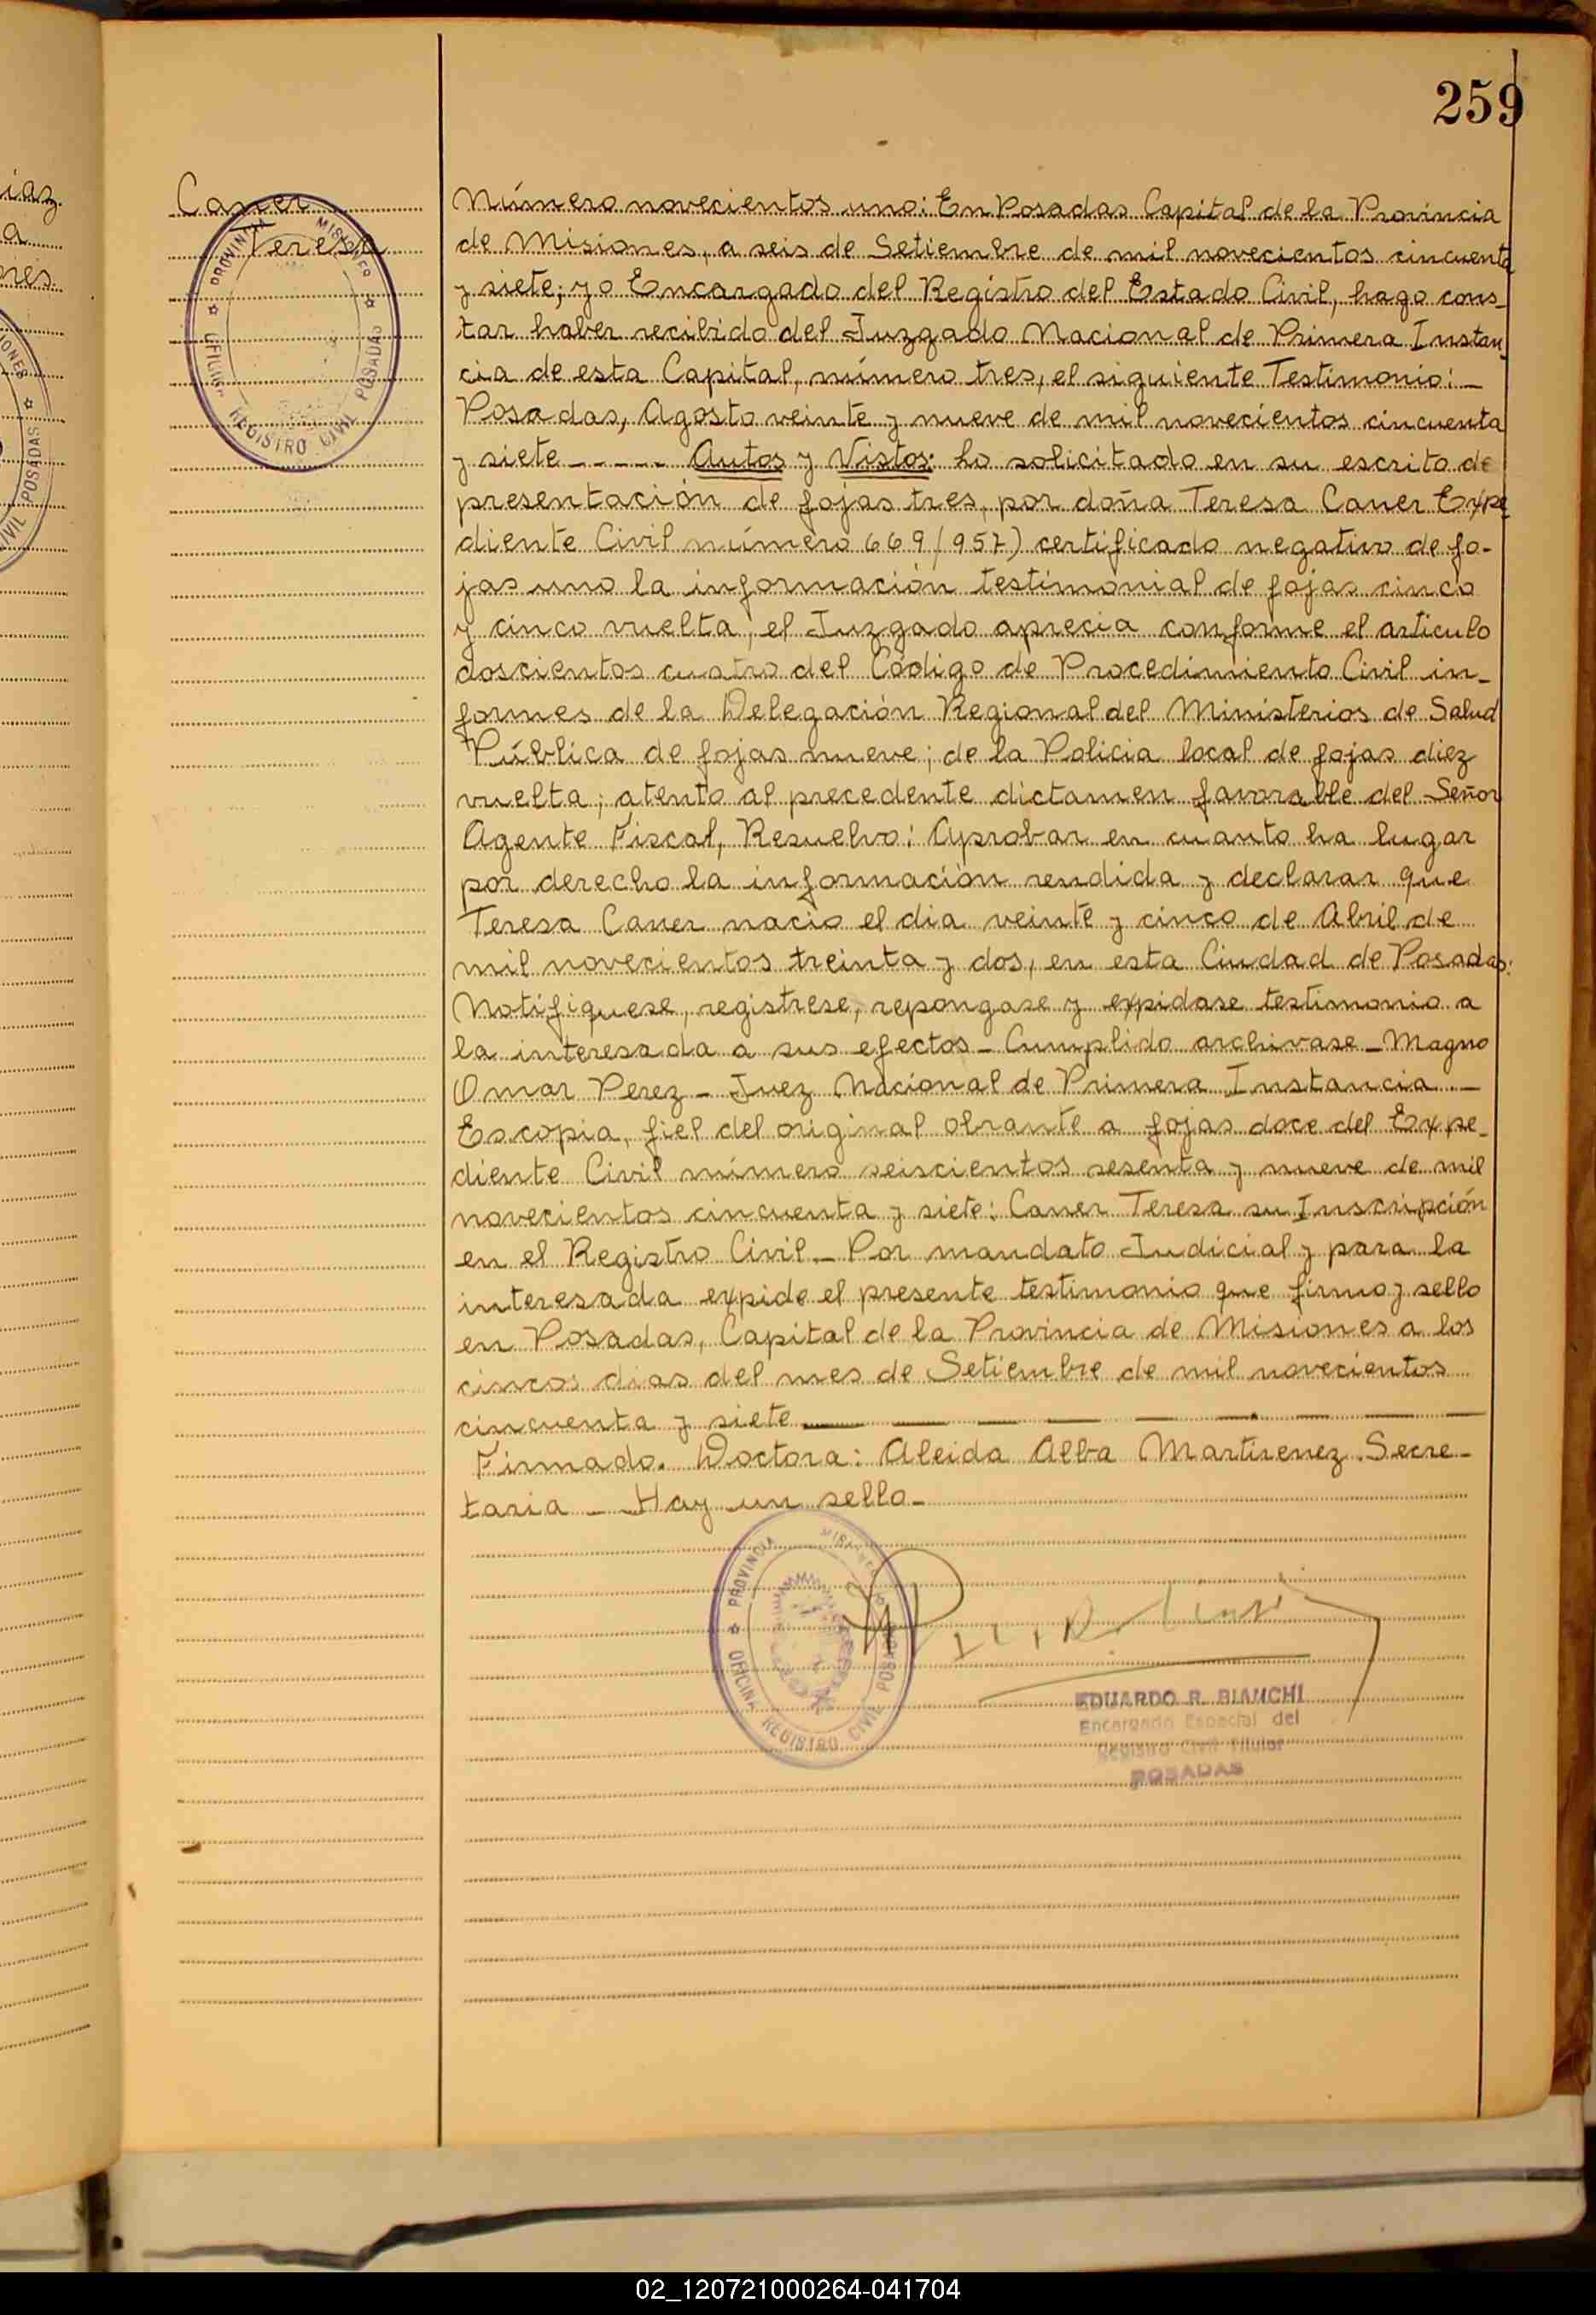 259
iaz.
a
res.
Caner
Teresa
PROVINCIA MISIONES
OFICINA REGISTRO CIVIL POSADAS
Número novecientos uno: En Posadas Capital de la Provincia
de Misiones, a seis de Setiembre de mil novecientos cincuenta
y siete; yo Encargado del Registro del Estado Civil, hago cons-
tar haber recibido del Juzgado Nacional de Primera Instan-
cia de esta Capital, número tres, el siguiente Testimonio: -
Posadas, Agosto veinte y nueve de mil novecientos cincuenta
y siete ----- Autos y Vistos: ho solicitado en su escrito de
presentación de fojas tres, por doña Teresa Caner Expe
diente Civil número 669/957) certificado negativo de fo-
jas uno la información testimonial de fojas cinco
y cinco vuelta, el Juzgado aprecia conforme el articulo
doscientos cuatro del Código de Procedimiento Civil in-
formes de la Delegación Regional del Ministerios de Salud
Pública de fojas nueve; de la Policia local de fojas diez
vuelta; atento al precedente dictamen favorable del Señor
Agente Fiscal, Resuelvo: Aprobar en cuanto ha lugar
por derecho la información rendida y declarar que
Teresa Caner nacio el dia veinte y cinco de Abril de
mil novecientos treinta y dos, en esta Ciudad de Posadas:
Notifiquese, registrese, repongase y expidase testimonio a
la interesada a sus efectos - Cumplido archivase - Magno
Omar Perez - Juez Nacional de Primera Instancia. -
Es copia, fiel del original obrante a fojas doce del Expe-
diente Civil número seiscientos sesenta y nueve de mil
novecientos cincuenta y siete: Caner Teresa su Inscripción
en el Registro Civil. - Por mandato Judicial y para la
interesada expide el presente testimonio que firmo y sello
en Posadas, Capital de la Provincia de Misiones a los
cincos dias del mes de Setiembre de mil novecientos
cincuenta y siete
Firmado. Doctora: Aleida Alba Martirenez. Secre-
taria - Hay un sello -
PROVINCIA MISIONES
OFICINA REGISTRO CIVIL POSADAS
EDUARDO R. BIANCHI
Encargado Especial del
Registro Civil Titular
POSADAS
02_120721000264-041704